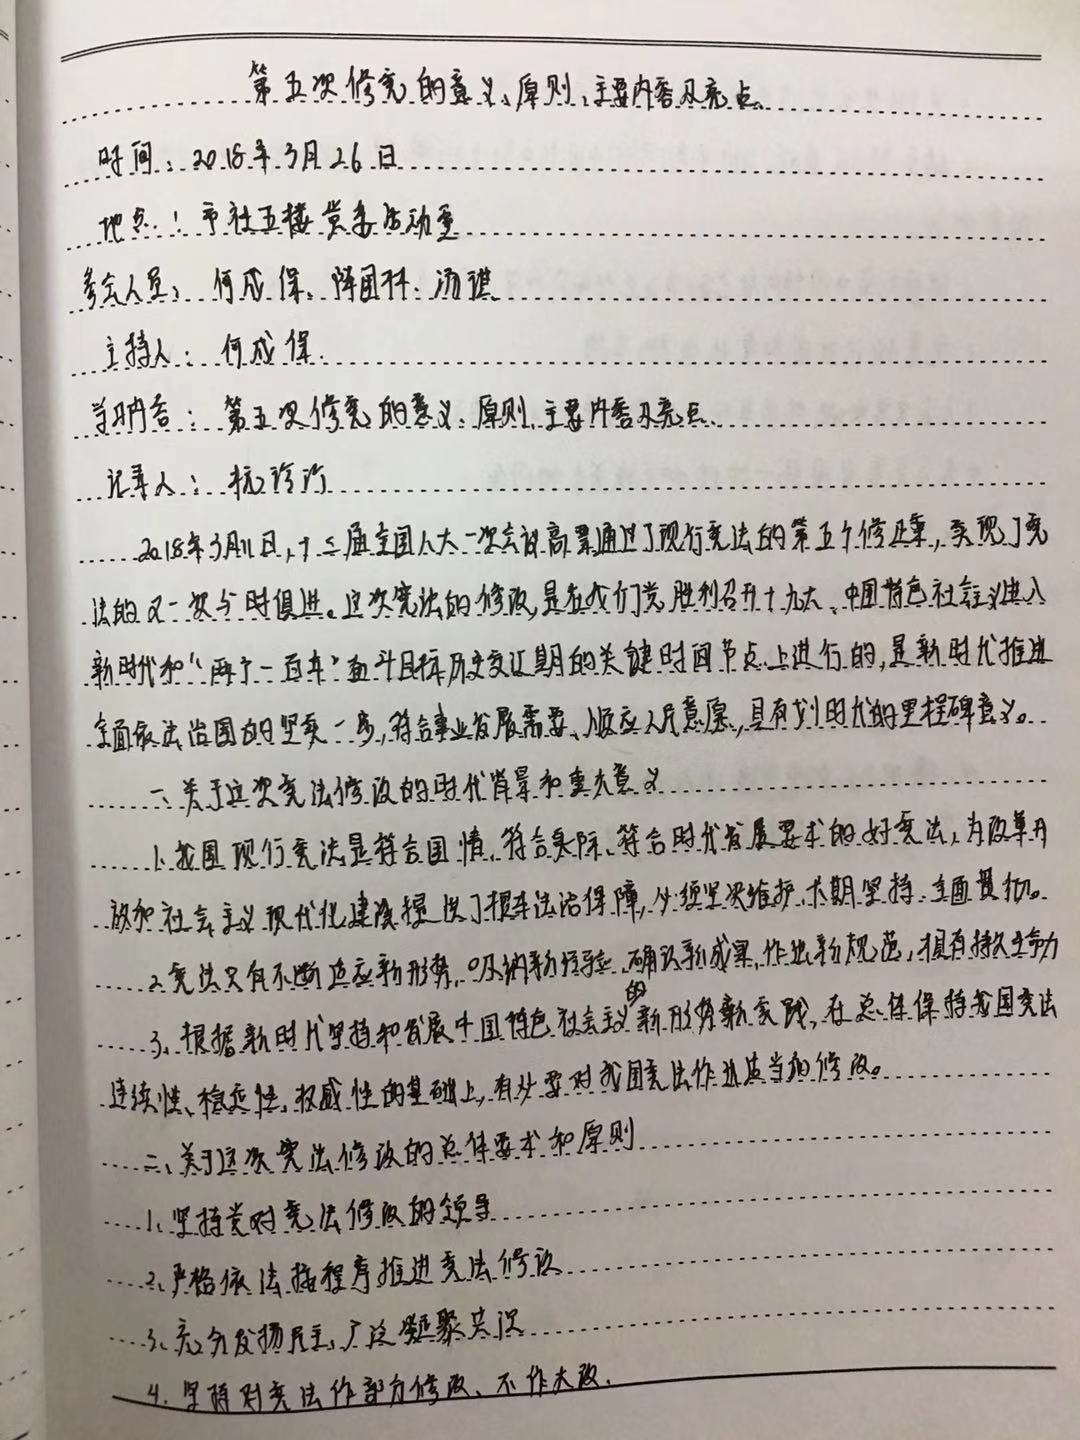 第五次修宪的意义、原则、主要内容及亮点、
时间：2018年3月26日
地点：市社五楼党委活动室
参会人员：何成保、陈国环、汤琪
主持人：何成保
学习内容：第五次修宪的意义、原则、主要内容及亮点、
记录人：杭玲玲
2018年3月11日，十三届全国人大一次会议高票通过了现行宪法的第五个修正案，实现了宪
法的又一次与时俱进。这次宪法的修改，是在我们党胜利召开十九大、中国特色社会主义进入
新时代和“两个一百年”奋斗目标历史交汇期的关键时间节点上进行的，是新时代推进
全面依法治国的坚实一步，符合事业发展需要、顺应人民意愿，具有划时代的里程碑意义。
一、关于这次宪法修改的时代背景和重大意义
1、我国现行宪法是符合国情、符合实际、符合时代发展要求的好宪法，为改革开
放和社会主义现代化建设提供了根本法治保障，必须坚决维护、长期坚持、全面贯彻。
2、宪法只有不断适应新形势、吸纳新经验、确认新成果、作出新规范，具有持久生命力
3、根据新时代坚持和发展中国特色社会主义的新形势新实践，在总体保持我国宪法
连续性、稳定性、权威性的基础上，有必要对我国宪法作出适当的修改。
二、关于这次宪法修改的总体要求和原则
1、坚持党对宪法修改的领导
2、严格依法按程序推进宪法修改
3、充分发扬民主，广泛凝聚共识
4、坚持对宪法作部分修改、不作大改、